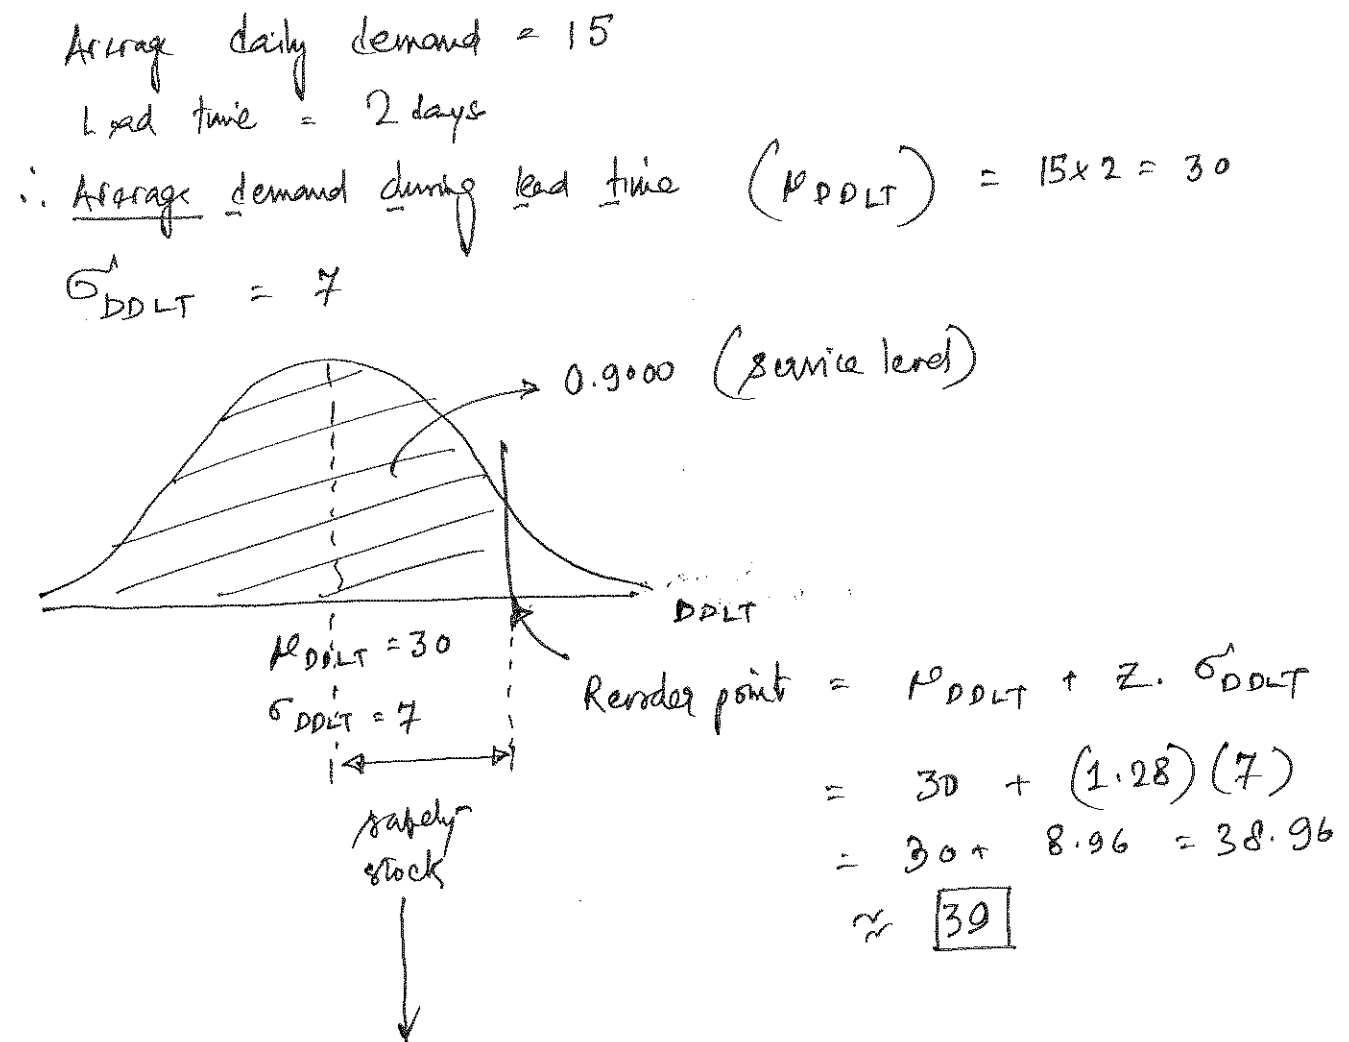 Average daily demand = 15
Lead time = 2 days
∴ Average demand during lead time (μ DDLT) = 15x2 = 30
σ DDLT = 7
0.9000 (service level)
DDLT
μ DDLT = 30
σ DDLT = 7
safety
stock
Reorder point = μ DDLT + Z. σ DDLT
= 30 + (1.28)(7)
= 30+ 8.96 = 38.96
≈ 39